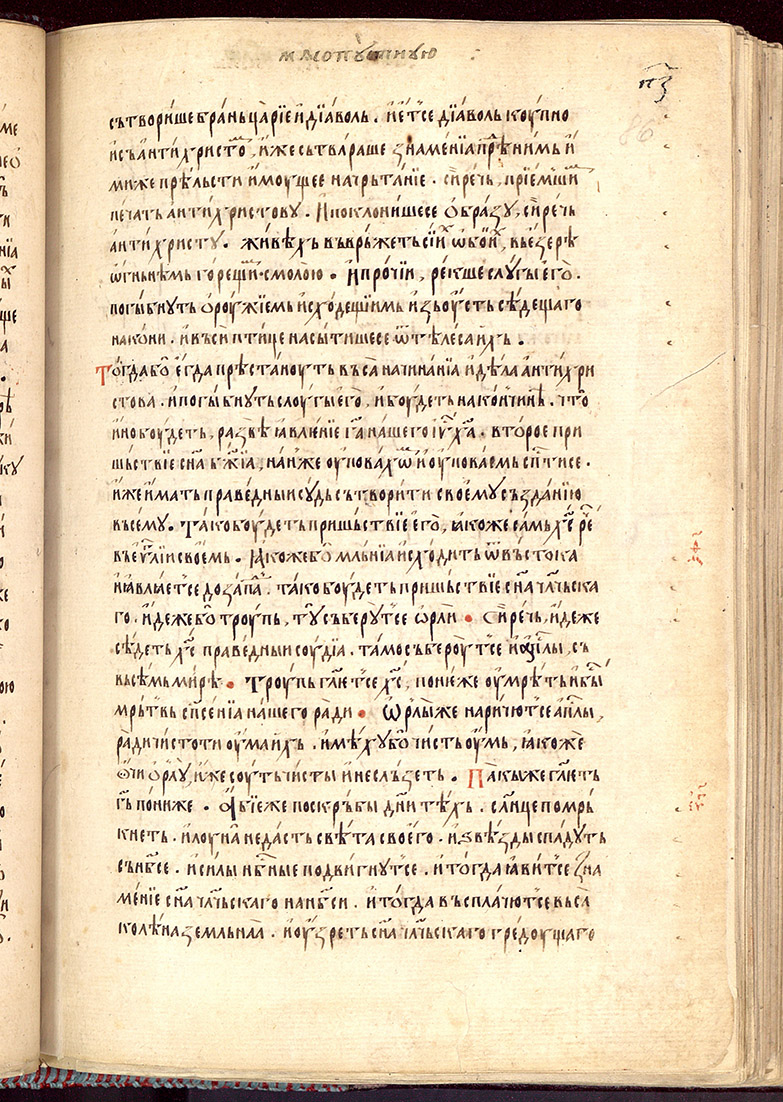 мѧсопⷭустнꙋю
п҃з
86
сътворише брань царїе и дїаволь. и ет'се дїаволь коупно
и съ антихристоⷨ, иже сътвараше знаменїа прѣⷣ нимь и
миже прѣльсти имоущее начрьтанїе. сирѣчь, прїемшиⷨ
печать антихристовꙋ. и поклонишесе ѡбразꙋ, сирѣчь
антихристꙋ. живѣхь въврьжеть сїиⷯ ѡбоиⷯ, въ езерѣ
ѡгньнѣмь горещиⷨ смолою. и прочїи, рекше слꙋгы его.
погыбнꙋть ороужїемь исходещїимь изь оусть сѣдещаго
на кони. и въси птице насытишесе ѿ тѣлеса ихь.
Тогда бо егда прѣстаноуть въса начинанїа и дѣла антихри
стова. и погыбнꙋть слоугы его, и боудеть на кончинѣ. что
ино боудеть, развѣ ꙗвлѣнїе га҃ нашего іу҃ х҃а. второе при
шьствїе сн҃а б҃жїа, на нже оуповахѡⷨ и оуповаемь сп҃тисе.
иже имать праведныи сꙋдь сътворити своемꙋ създанїю
въсемꙋ. Тако боудеть пришьствїе его, ꙗкоже самь х҃с реⷱ҇
въ еѵⷢ҇лїи своемь. Ꙗкоже бо млънїа исходить ѿ въстока
и ꙗвлꙗет'се до запⷣа. тако боудеть пришьствїе сн҃а чл҃чьска
го. идеже бо троупь, тꙋ съберꙋт'се ѡрли • Сирѣчь, идеже
сѣдеть х҃с праведныи соудїа. тамо събероут'се и аⷢ҇глы, съ
въсѣмь мирѣ • Троупь гл҃ет'се х҃с, понеже оумрѣть и быⷭ҇
мрьтвь сп҃сенїа нашего ради • Ѡрлы же наричют'се ап҃лы,
ради чистоти оума ихь. имѣхꙋ бо чисть оумь, ꙗкоже
ѡчи орлꙋ, иже соуть чисты и не слъзеть. Пакы же гл҃еть
г҃ь пониже. Абїе же по скръбы дн҃и тѣхь. слн҃це помрь
кнеть. и лоуна не дасть свѣта своего. и ѕвѣзды спадꙋть
съ нб҃се. и силы нб҃ные подвигнꙋт'се. и тогда ꙗвит'се зна
менїе сн҃а чл҃чьскаго на нб҃си. и тогда въсплачют'се въса
колѣна земльнаа. и оузреть сн҃а чл҃чьскаго гредоущаго